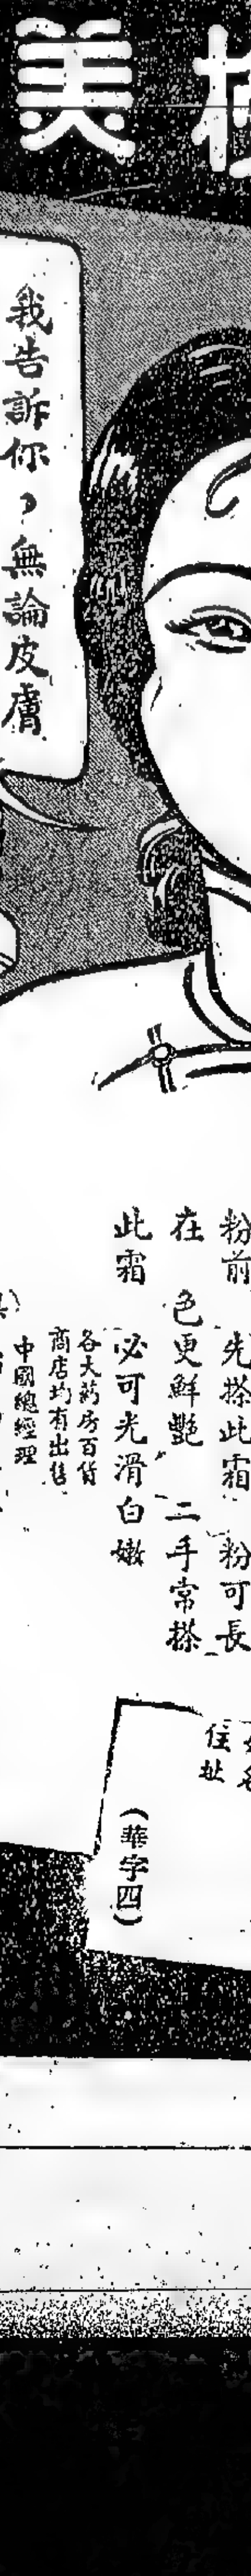 美
我告訴你，無論皮膚
粉前 先搽此霜 粉可長
在 色更鮮艷 二手常搽
此霜 必可光滑白嫩
各大葯房百貨
商店均有出售
中國總經理
住址
(華字四)